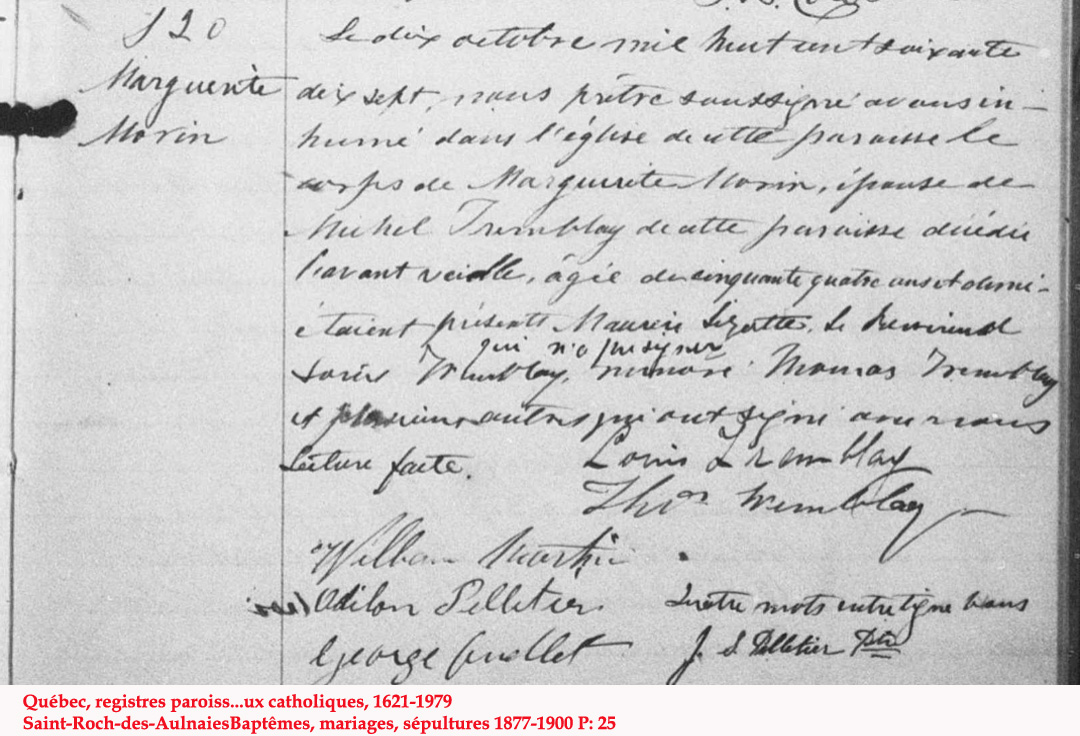 S 20
Marguerite
Morin
Le dix octobre mil huit cent soixante
dix sept, nous prêtre soussigné avons in-
humé dans l'église de cette paroisse le
corps de Marguerite Morin, épouse de
Michel Tremblay de cette paroisse décédée
l'avant veille, âgée de cinquante quatre ans et demi-
étaient présents Maurice Lizotte, Le Reverend
qui n'a pu signer
Louis Tremblay, Thomas Tremblay
et plusieurs autres qui ont signé avec nous
Lecture faite.
Louis Tremblay
Thos Tremblay
William Martin
Odilon Pelletier
quatre mots entreligne bons
George Ouellet
J. S. Pelletier Ptre
Québec, registres paroiss...ux catholiques, 1621-1979
Saint-Roch-des-AulnaiesBaptêmes, mariages, sépultures 1877-1900 P: 25